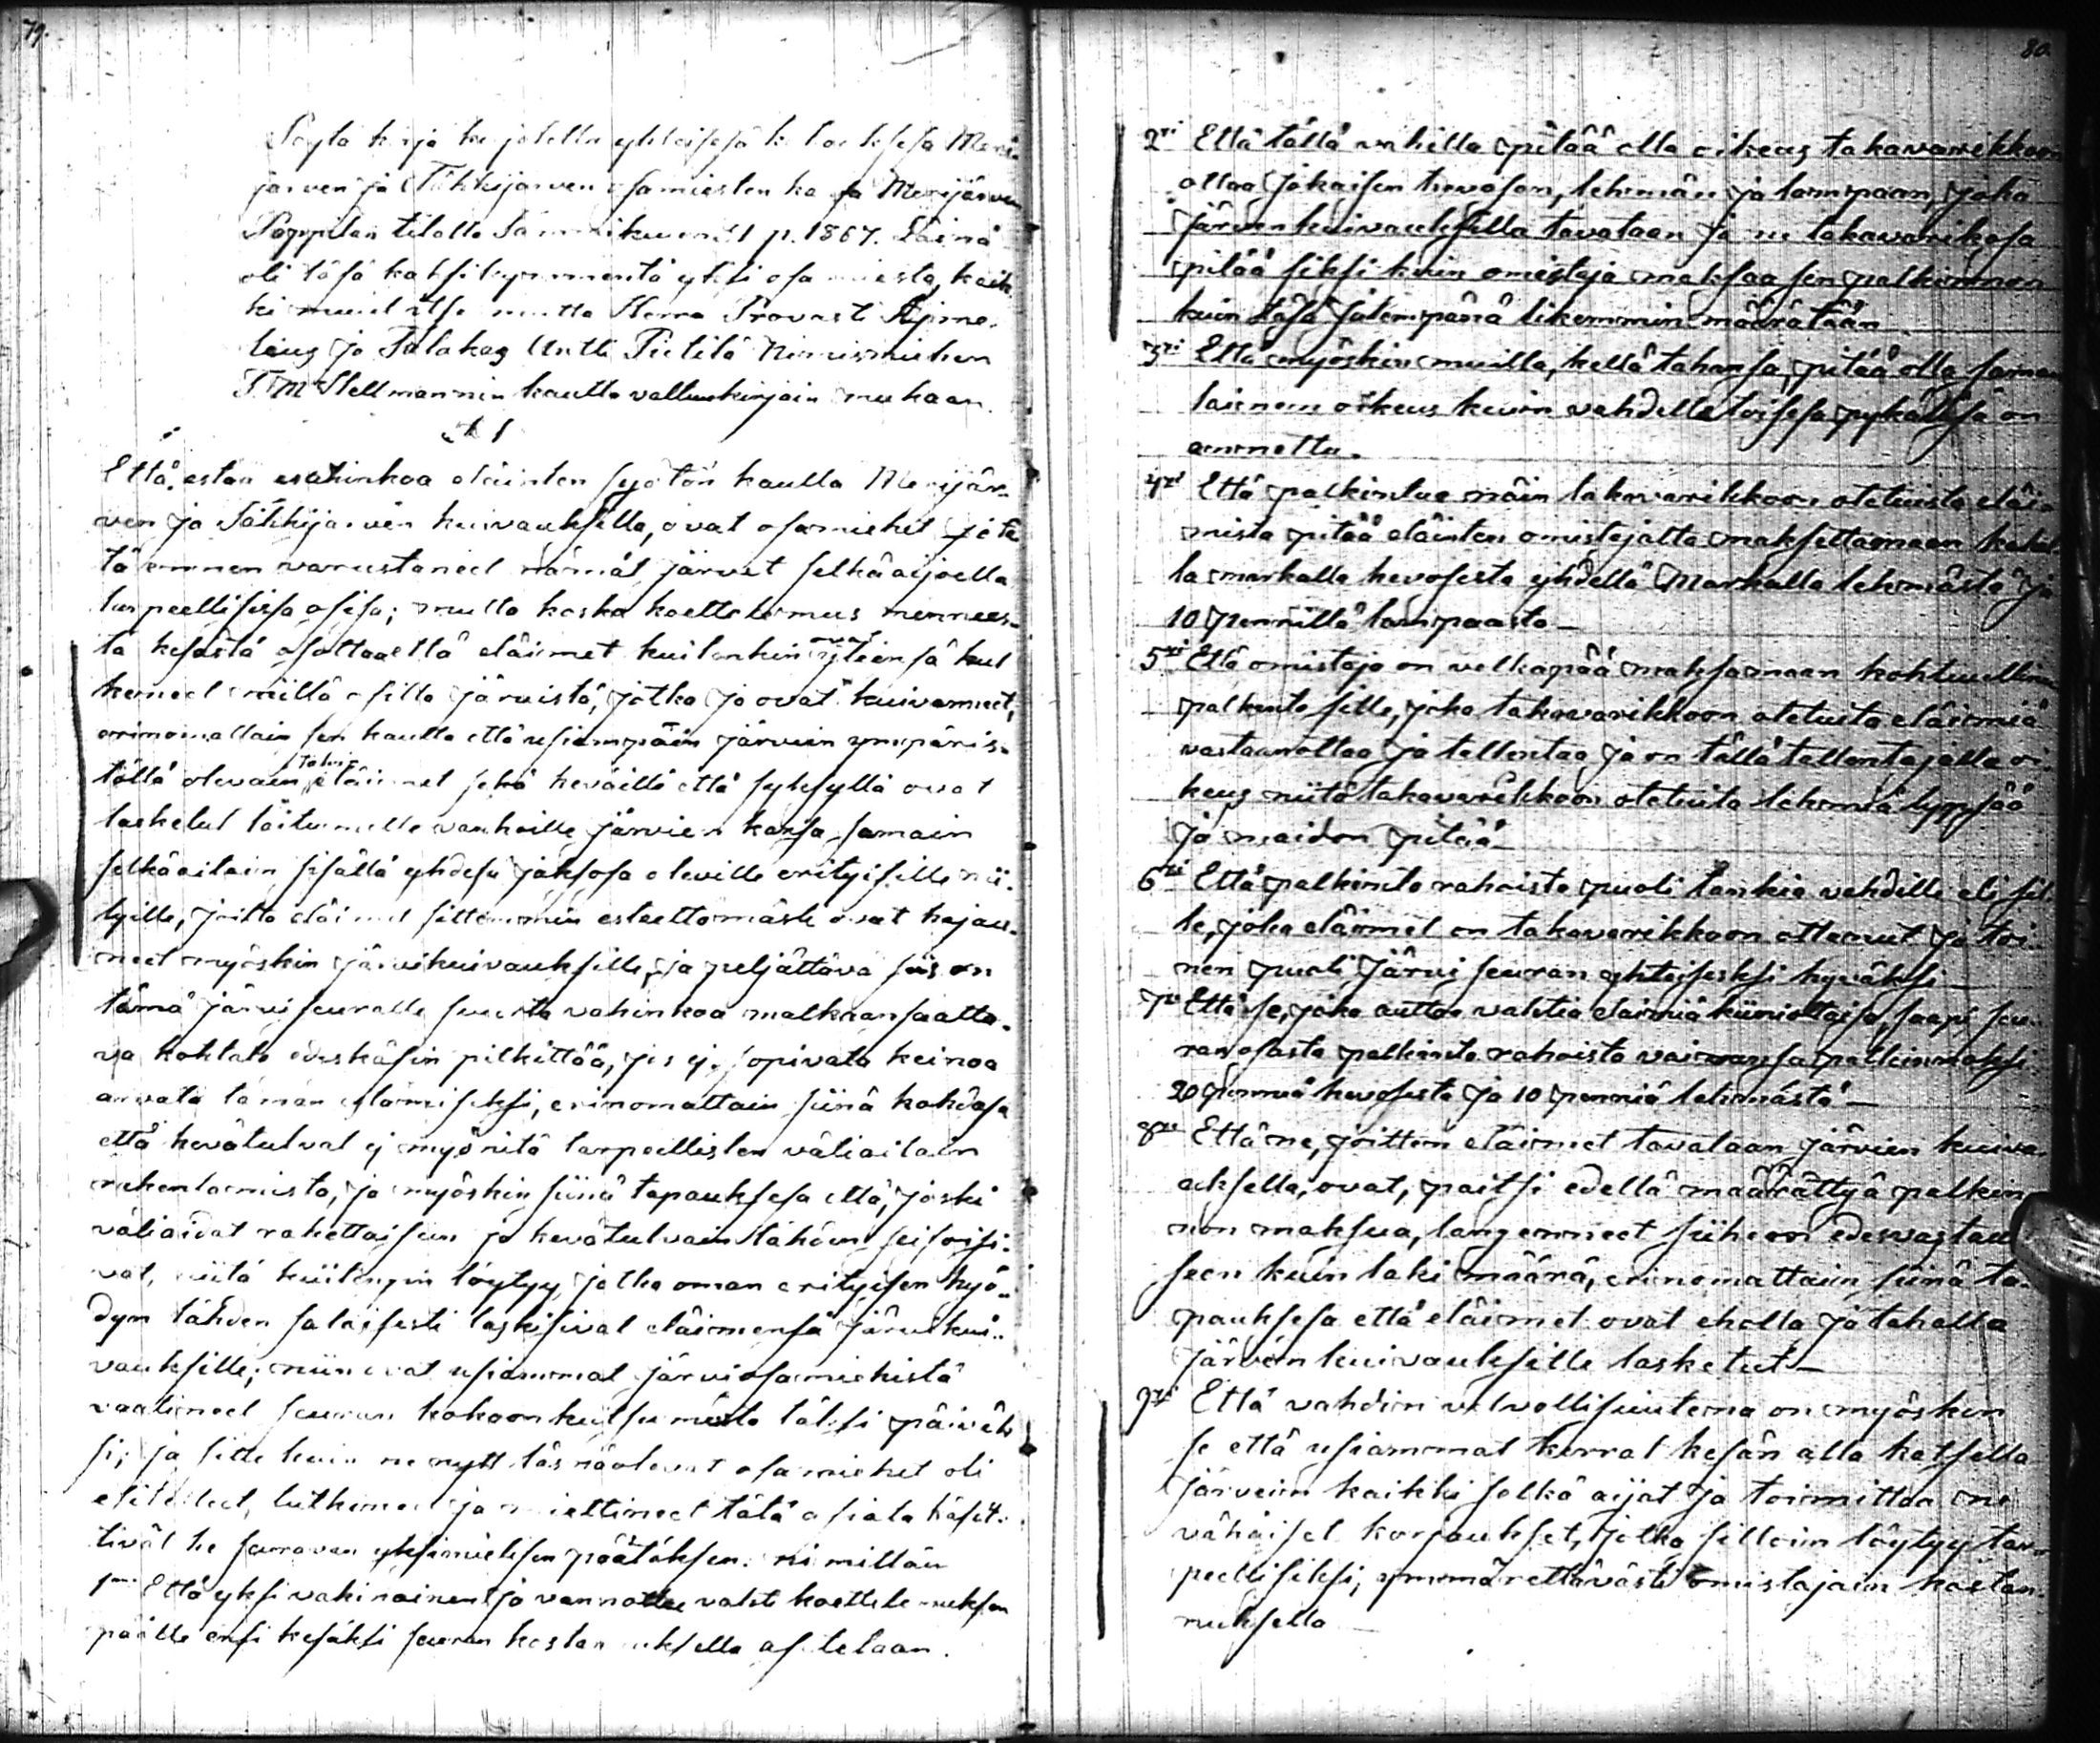 79.
Pöytäkirja pidetty yhteisessä kokouksesa Meri-
järven ja Tähkijärven osamiesten kansa Merijärven
Pappilan tilalla Tammikuun 21 p. 1867. Läsnä
oli täsä kaksikymmentä yksi osamiestä, kaik-
ki muut itse mutta Herra Provasti
ja Talakas Antti Pietilä Nimismiehen
F. M. Hellmannin kautta valtuuskirjain mukaan.
§ 1
Että estää vahinkoa eläinten syötön kautta Merijär-
ven ja Tähkijärven kuivauksella, ovat osamiehet jo tä-
tä ennen varustaneet nämät järvet selkäaijoilla
tarpeellisissa osisa; mutta koska koettelemus mennees-
tä kesästä osottaa että eläimet kuitenkin ovat yleensä kul-
keneet niillä osilla järvistä, jotka jo ovat kuivanneet,
erinomattain sen kautta että usiampain järvein ympäris-
töllä olevain taloin eläimet sekä keväillä että syksyllä ovat
lasketut laitumelle vanhoille järvien kansa samain
selkäaitain sisällä yhdesä jaksosa oleville erityisille nii-
tyille, joilta eläimet sittemmin esteettömästi ovat hajau-
neet myöskin järvikuivauksille, ja peljättävä siis on
tämä järviseuralle suurta vahinkoa matkaansaatta-
va kohtalo edeskäsin pitkittää, jos ej sopivata keinoa
arvata tämän estämiseksi, erinomattain siinä kohdasa
että kevätulvat ej myönitä tarpeellisten väliaitain
rakentamista, ja myöskin siinä tapauksesa että, joski
väliaidat rakettaisiin ja kevätulvain tähden seisoisi-
vat, niitä kuitengin löytyy jotka oman erityisen hyö-
dyn tähden salaisesti laskisivat eläimensä järvikui-
vauksille; niin ovat usiammat järviosamiehistä
vaatineet seuran kokoonkutsumista täksi päiväk-
si; ja sitte kuin ne nytt läsnäolevat osamiehet oli
esitelleet, tutkineet ja miettineet tätä asiata käsit-
tivät he seuravan yksimielisen päätöksen: nimittäin
1ksi Että yksi vakinainen ja vannottu vahti koettelemuksen
päälle ensi kesäksi seuran kostannuksella asetetaan.
80.
2ksi Että tällä vahilla pitää olla oikeus takavarikkoon
ottaa jokaisen hevosen, lehmän ja lampaan, joka
järvenkuivauksella tavataan ja ne takavarikosa
pitää siksi kuin omistaja maksaa sen palkinnon
kuin täsä jälempänä likemmin määrätään
3ksi Että myöskin muilla, kellä tahansa, pitää olla saman-
lainen oikeus kuin vahdilla toisesa pykälässä on
annettu.
4ksi Että palkintoa näin takavarikkoon otetuista eläi-
mistä pitää eläinten omistajalta maksettamaan kahdel-
la markalla hevosesta yhdellä Markalla lehmästä ja
10 pennillä lampaasta —
5ksi Että omistaja on velkapää maksamaan kohtuullisen
palkinto sille, joka takavarikkoon otetuita eläimiä
vastaanottaa ja tallentaa ja on tällä tallentajalla oi-
keus niitä takavarikkoon otetuita lehmiä lypsää
ja maidon pitää —
6ksi Että palkinto rahoista puoli lankia vahdille eli sil-
le, joka eläimet on takavarikkoon ottanut ja toi-
nen puoli järvi seuran yhteiseksi hyväksi —
7ksi Että se, joka auttaa vahtia eläimiä kiiniottaisa, saapi seu-
ran osasta palkinto rahoista vaivansa palkinnoksi
20 penniä hevosesta ja 10 penniä lehmästä —
8ksi Että ne, joitten eläimet tavataan järvien kuiva-
uksella, ovat, paitsi edellä määrättyä palkin-
non maksua, langenneet siiheen edesvastauk-
seen kuin laki määrä, erinomattain siinä ta-
pauksesa että eläimet ovat eholla ja tahalla
järvein kuivauksille lasketut —
9ksi Että vahdin velvollisuutena on myöskin
se että usiammat kerrat kesän alla katsella
järvein kaikki selkä aijat ja toimittaa ne
vähäiset korjaukset, jotka silloin löytyy tar-
peellisiksi, ymmärrettävästi omistajain kostan-
nuksella —